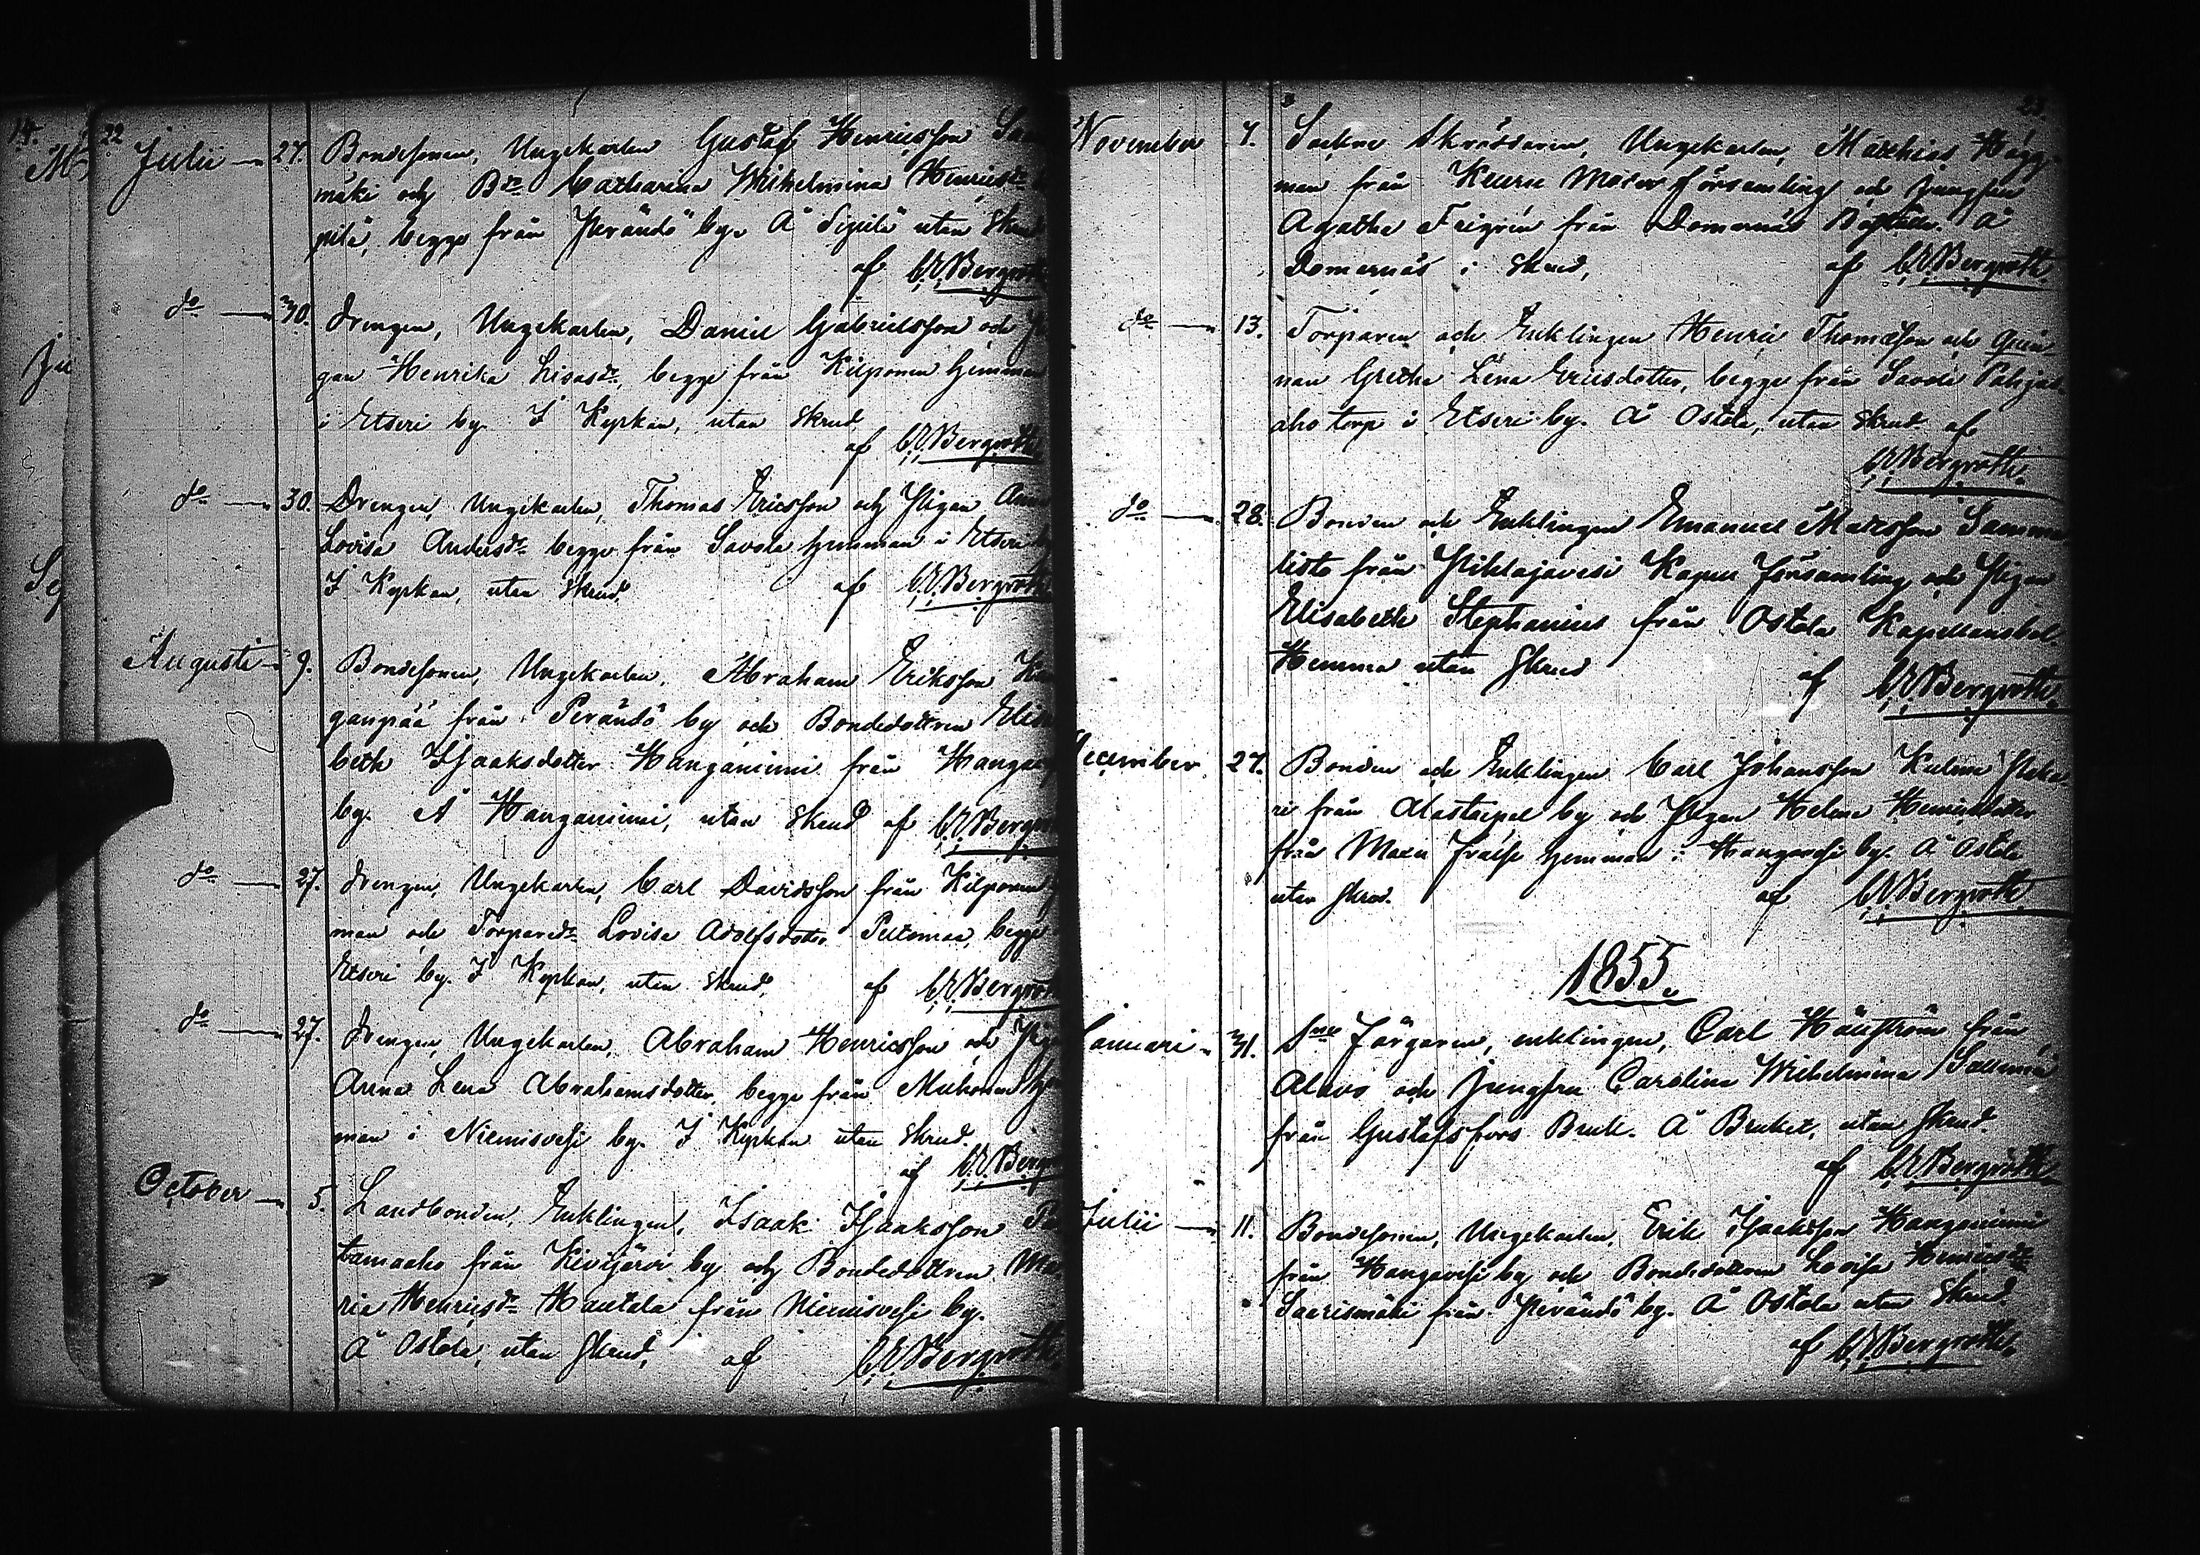 22
Julii 27. Bondesonen, Ungekarlen Gustaf Henricsson
mäki och Bdr Catharina Wilhelmina Henricsdr
pilä, begge från Perändö by. Å Sipilä utan Skrud
af C.E. Bergroth
do 30. Drengen, Ungekarlen, Daniel Gabrielsson och
gan Henrika Lisasdr, begge från Kilponen hemman
i Etseri by. I Kyrkan, utan Skrud
af C.E. Bergroth
do 30. Drengen, Ungekarlen, Thomas Ericsson och Pigan
Lovisa Andersdr begge från Savola hemman i Etseri
I Kyrkan, utan Skrud,
af C.E. Bergroth
Augusti 9. Bondesonen, Ungekarlen, Abraham Eriksson
ganpää från Perändö by och Bondedottren Elisa
beth Isaaksdotter Hanganiemi från
by. Å Hanganiemi, utan Skrud af C.E. Bergroth
do 27. Drengen, Ungekarlen, Carl Davidsson från Kilponen
man och Torparedr Lovisa Adolfsdotter Peltomaa, begge
Etseri by. I Kyrkan, utan Skrud,
af C.E. Bergroth
do 27. Drengen, Ungekarlen, Abraham Henricsson och
Anna Lena Abrahamsdotter, begge från Muhonen
man i Niemisvesi by. I Kyrkan utan Skrud.
af C.E. Bergroth
October 5. Landbonden, Enklingen, Isaak Isaaksson
tamaaho från Kivijärvi by och Bondedottren Ma
ria Henricsdr Hautala från Niemisvesi by.
Å Ostola, utan Skrud, af C.E. Bergroth
23.
November 7. Sockne Skräddaren, Ungekarlen, Matthias Hägg
man från Keuru Moder församling och Jungfru
Agatha från Domarnäs Å
Domarnäs i Skrud, af C.E. Bergroth
do 13. Torparen och Enklingen Henric Thomasson och Qvin
nan Gretha Lena Ericsdotter, begge från Savola
aho torp i Etseri by. Å Ostola, utan Skrud af
C.E. Bergroth
do 28. Bonden och Enklingen Emanuel Matsson
listo från Pihlajavesi Kapell församling och Pigan
Elisabeth Stephanius från Ostola Kapellansbol.
Hemma utan Skrud af C.E. Bergroth
December 27. Bonden och Enklingen Carl Johansson
ri från by och Pigan Helena Henricsdotter
från Maxu Frälse hemman i by. Å Ostola
utan Skrud. af C.E. Bergroth
1855.
Januari 31. Färgaren, enklingen, Carl från
Alavo och Jungfru Carolina Wilhelmina
från Gustafsfors Bruk. Å Bruket, utan Skrud
af C.E. Bergroth
Julii 11. Bondesonen, Ungekarlen, Erik Isaaksson Hanganiemi
från by och Bondedottren Lovisa Henricsdr
Saarismäki från Perändö by. Å Ostola utan Skrud
af C.E. Bergroth